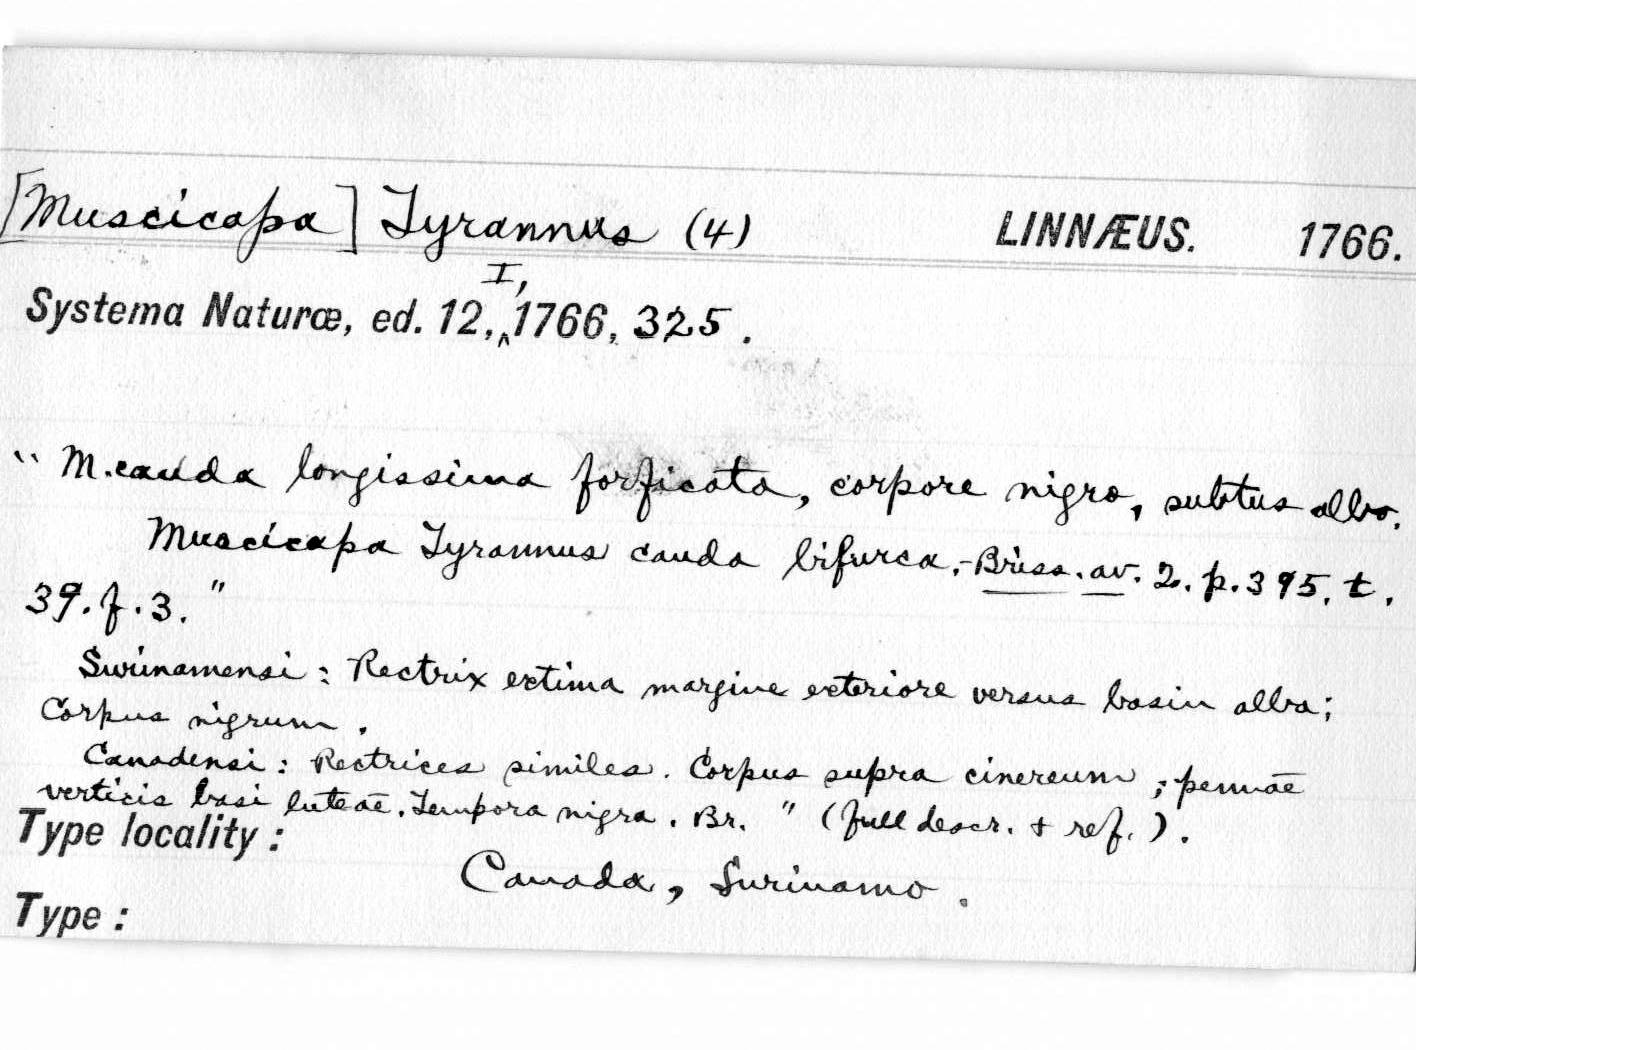 [Muscicapa] Tyrannus (4) LINNÆUS. 1766.
I,
Systema Naturæ, ed. 12,^1766, 325.
"M. cauda longissima forficata, corpore nigro, subtus albo.
Muscicapa Tyrannus cauda bifurca,-Briss. av. 2. p. 395. t.
39. f. 3."
Surinamensi: Rectrix extima margine exteriore versus basin alba;
Corpus nigrum.
Canadensi: Rectrices similes. Corpus supra cinereum; pennae
verticis basi luteae. Tempora nigra. Br." (full descr. + ref.).
Type locality:
Canada, Surinamo.
Type: